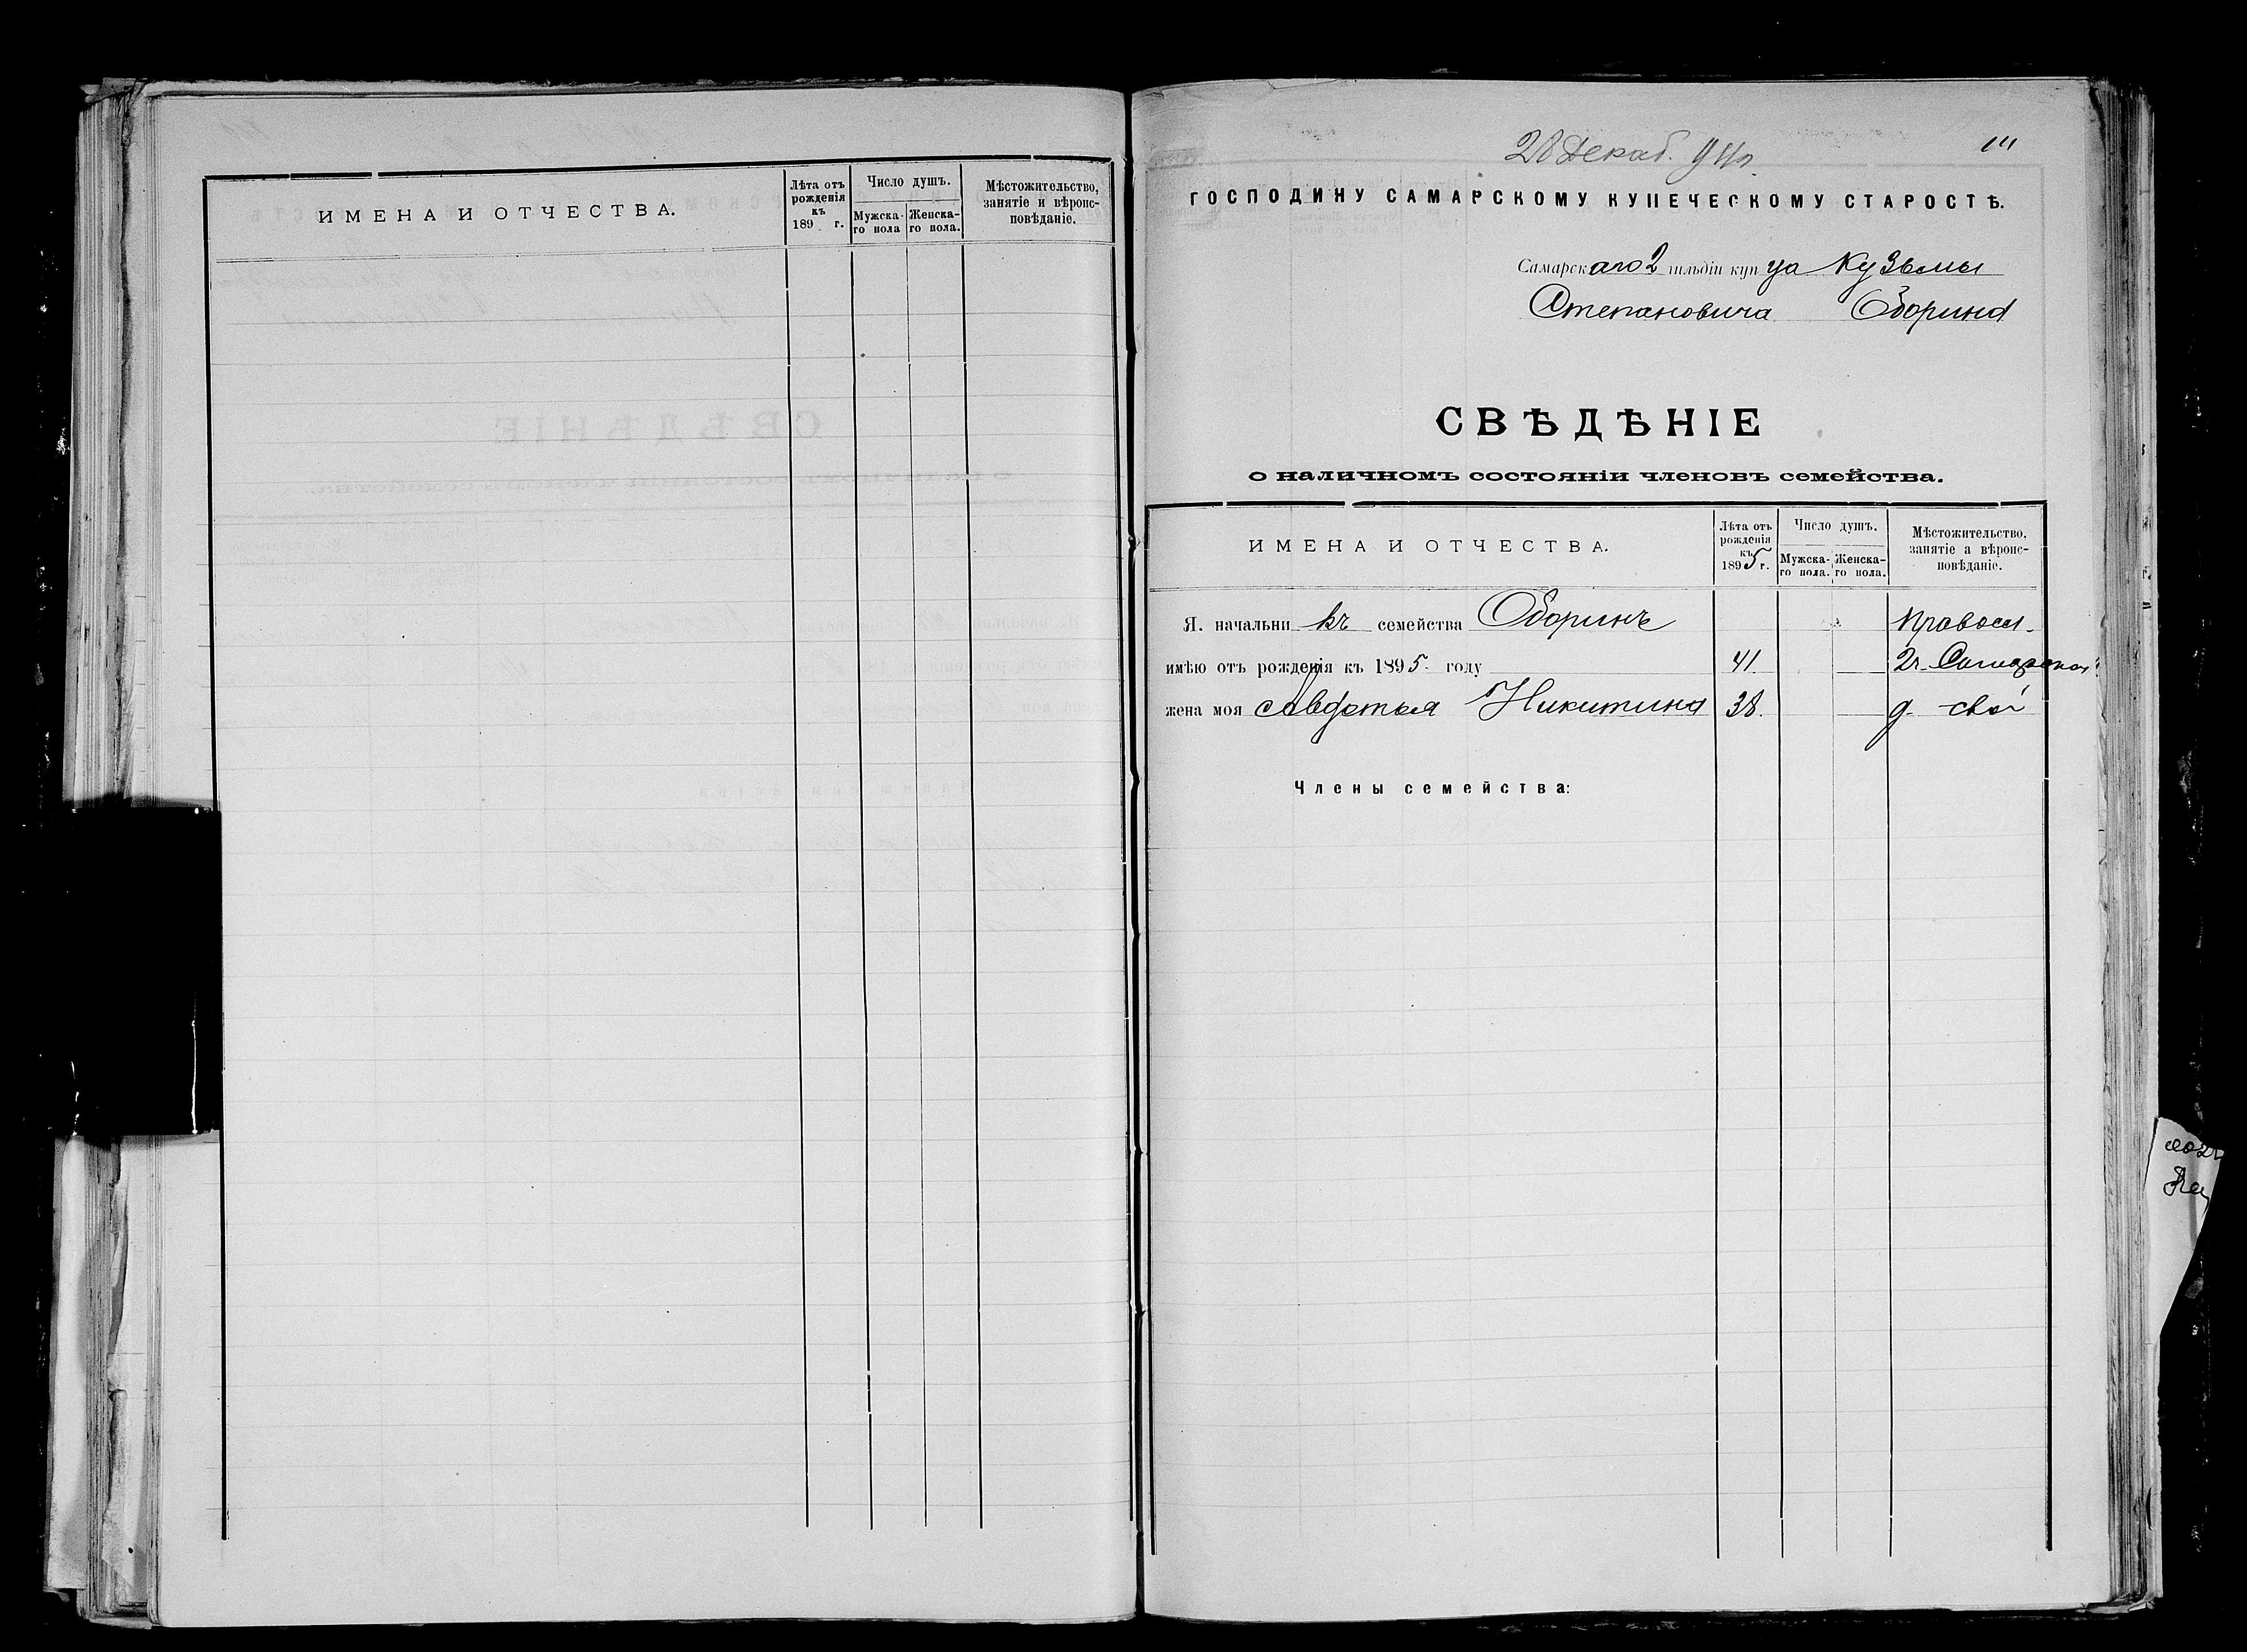 ИМЕНА И ОТЧЕСТВА.
Лѣта отъ рожденія къ 189 г.
Число душъ.
Мужска-го пола
Женска-го пола.
Мѣстожительство, занятіе и вѣроис-повѣданіе.
28 Декаб. 94 г.
ГОСПОДИНУ САМАРСКОМУ КУПЕЧЕСКОМУ СТАРОСТѢ.
Самарскаго 2 гильдіи купца Кузьмы
Степановича Оборина
СВѢДѢНІЕ
о наличномъ состояніи членовъ семейства.
ИМЕНА И ОТЧЕСТВА.
Лѣта отъ рожденія къ 1895 г.
Число душъ.
Мужска-го пола.
Женска-го пола.
Мѣстожительство, занятіе а вѣроис-повѣданіе.
Я. начальникъ семейства Оборинъ Правосл.
имѣю отъ рожденія къ 1895 году 41. 2ч. Самарской
жена моя Авдотья Никитина 38. д. свой
Члены семейства: